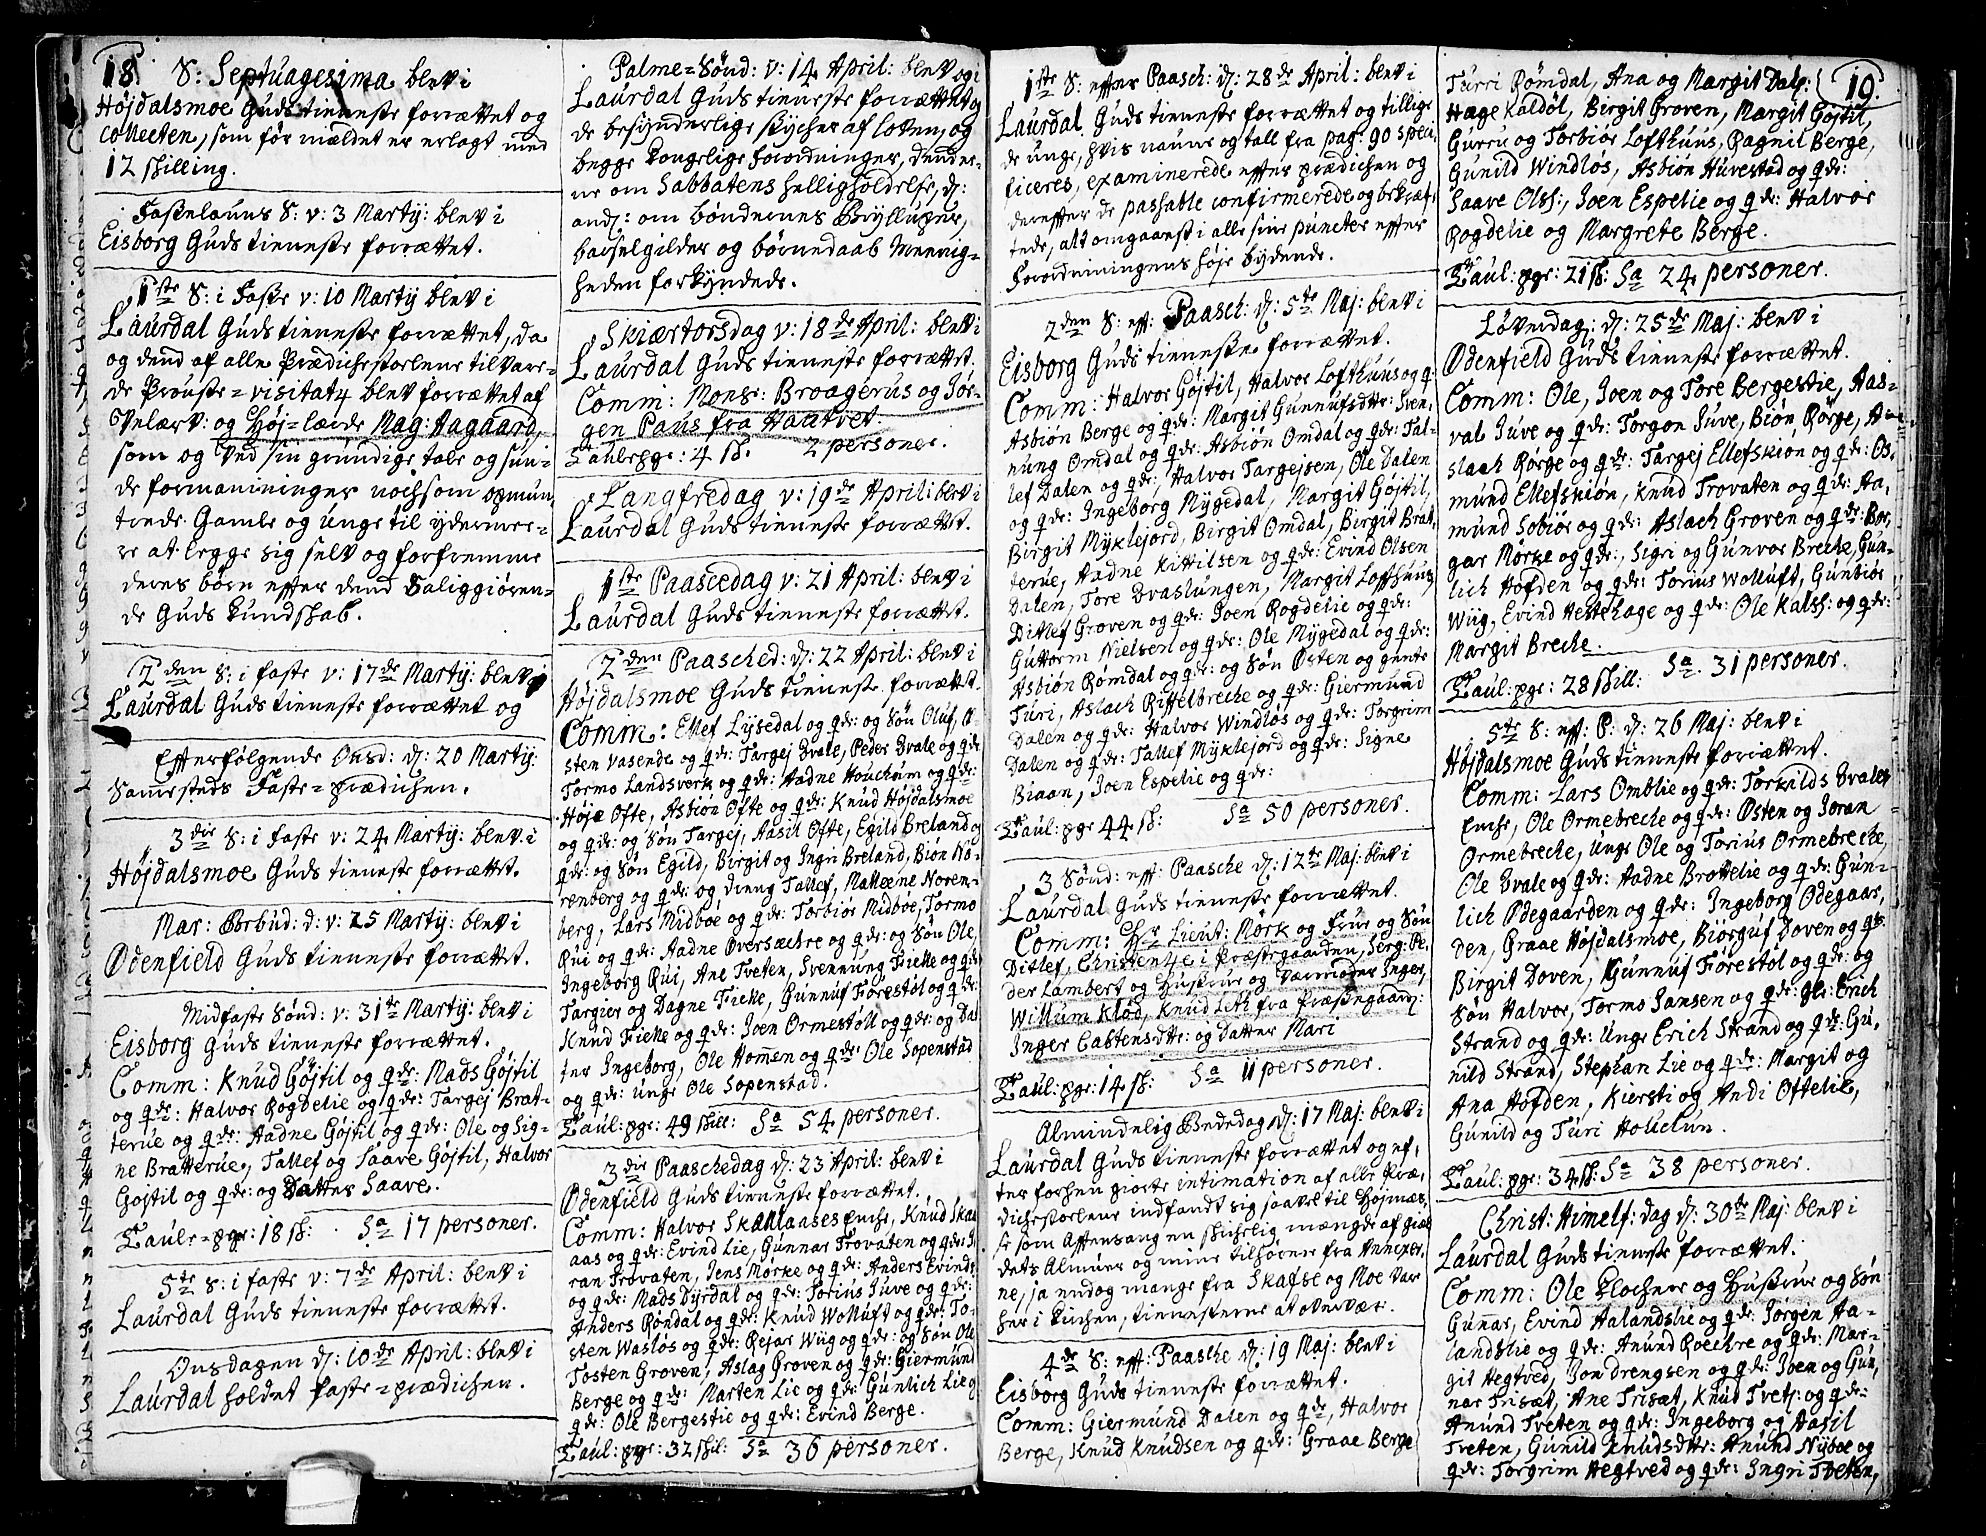 18.
S: Septuagesima blev i
Højdalsmoe Guds tieneste forrættet og
Collecten, som før mældet er erlagt med
12 skilling.
Fastelauns S: v: 3 Martij: blev i
Eisborg Guds tieneste forrættet.
1ste S: i Faste v: 10 Martij blev i
Laurdal Guds tieneste forrættet, da
og dend af alle Prædichestolene tilvare-
de Prouste-visitatz blev forrættet af
Velærv: og Høj-lærde Mag: Aagaard,
som og ved sin grundige tale og sun-
de formaninger nochsom opmun-
trede Gamle og Unge til ydermee-
re at legge sig selv og forfremme
deres børn effter dend Saliggiøren-
de Guds kundskab.
2den S: i faste v: 17de Martij: blev i
Laurdal Guds tieneste forrættet og
Effterfølgende Onsd: d: 20 Martij:
Sammesteds Faste-prædichen.
3die S: i faste v: 24 Martij: blev i
Højdalsmoe Guds tieneste forrættet.
Mar: Borbud: d: v: 25 Martij: blev i
Ødenfield Guds tieneste forrættet.
Midfaste Sønd: v: 31te Martij: blev i
Eisborg Guds tieneste forrættet.
Comm: Knud Gøjtil og qde: Mads Gøjtil
og qde: Halvor Rogdelie og qde: Targej Brat-
terue og qde: Aadne Gøjtil og qde: Ole og Sig-
ne Bratterue, Tallef og Saave Gøjtil, Halvor
Gøjtil og qde: og Datter Saave.
Taule-pge: 18 s: Sa 17 personer.
5te S: i faste v: 7de April: blev i
Laurdal Guds tieneste forrættet.
Onsdagen d: 10de April: blev i
Laurdal holdet faste-prædichen.
Palme-Sønd: v: 14 April: blev og i
Laurdal Guds tieneste forrættet og
de besynderlige stycher af loven, og
begge kongelige forordninger, dend ee-
ne om Sabbatens helligholdelse, d:
and: om bøndernes Bryllupper,
barselgilder og børnedaab Menig-
heden forkyndede.
Skiærtorsdag v: 18de April: blev i
Laurdal Guds tieneste forrættet.
Comm: Mons: Broagerus og Jør-
gen Paus fra Haatvet.
Taule pge: 4 s. 2 personer.
Langfredag v: 19de April: blev i
Laurdal Guds tieneste forrættet.
1ste Paascedag v: 21 April: blev i
Laurdal Guds tieneste forrættet.
2den Paasched: d: 22 April: blev i
Højdalsmoe Guds tieneste forrættet.
Comm: Ellef Lysedal og qde: og Søn Oluf, Ø-
sten Vasende og qde: Targej Qvale, Peder Qvale og qde
Tormo Landsverk og qde: Aadne Houchum og qde:
Høje Ofte, Asbiøn Ofte og qde: Knud Højdalsmoe
og qde: og Søn Targej, Aasil Ofte, Egild Breland og
qde: og Søn Egild, Birgit og Ingri Breland, Biøn No-
renberg og qde: og dreng Tallef, Matleene Noren-
berg, Lars Midboe og qde: Torbiør Midboe, Tormo
Qui og qde: Aadne Oversæchre og qde: og Søn Ole,
Ingeborg Rui, Ane Tveten, Svennung Ficke og qde:
Targier og Dagne Ficke, Gunnuf Førestøl og qde:
Knud Ficke og qde: Joen Ormestøll og qde: og Dat-
ter Ingeborg, Ole Hommen og qde: Ole Sopenstad
og qde: unge Ole Sopenstad.
Taul: pge: 49 skill: Sa 54 personer.
3die Paaschedag d: 23 April: blev i
Ødenfield Guds tieneste forrættet.
Comm: Halvor Skallaases Enche, Knud Skal-
aas og qde: Evind Lie, Gunnar Trovaten og qde: Jø-
ran Trovaten, Jens Mørke og qde: Anders Evinds:
og qde: Mads Dyrdal og qde: Torius Juve og qde:
Anders Røndal og qde: Knud Wolluft og qde: To-
sten Wasløs og qde: Rejar Wiig og qde: og Søn Ole
Tosten Groven, Aslag Groven og qde: Giermund
Berge og qde: Marten Lie og qde: Gunlich Lie og
qde: Ole Bergestie og qde: Evind Berge.
Taul: pge: 32 skil: Sa 36 personer.
1ste S: effter Paasch: d: 28de April: blev i
Laurdal Guds tieneste forrættet og tillige
de unge, hvis naune og tall fra pag: 90 speci-
ficeres, examinerede effter prædichen og
dereffter de passable confirmerede og bekræf-
tede, alt omgaaest i alle sine puncter effter
Forordningens høje bydende.
2den S: eff: Paasch: d: 5te Maj: blev i
Eisborg Guds tieneste forrættet.
Comm: Halvor Gøjtil, Halvor Lofthuus og q:
Asbiøn Berge og qde: Margit Gunnufsdtr: Sven-
nung Omdal og qde: Asbiøn Omdal og qde: Tal-
lef Dalen og qde:, Halvor Targejsen, Ole Dalen
og qde: Ingeborg Mygedal, Margit Gøjtil,
Birgit Myklejord, Birgit Omdal, Birgit Brat-
terue, Aadne Kittilsen og qde: Evind Olsen
Dalen, Tore Qvaslungen, Margit Lofthuus,
Ditlef Groven og qde: Joen Rogdelie og qde:
Guttorm Nielsen og qde: Ole Mygedal og qde:
Asbiøn Rømdal og qde: og Søn Østen og gente
Turi, Aslach Riffelbreche og qde: Giermund
Dalen og qde: Halvor Windløs og qde: Torgrim
Dalen og qde: Tallef Myklejord og qde: Signe
Biaan, Joen Espelie og qde:
Taul: pge 44 s: Sa 50 personer.
3 Sønd: eff: Paasche d: 12te Maj: blev i
Laurdal Guds tieneste forrættet.
Comm: Hr Lieut: Mørk og Frue og Søn
Ditlef, Christentze i Præstegaarden, Serg: Pe-
der Lambert og Hustrue og Værmoder Inger,
Willum Klod, Knud Lith fra Præstegaard:
Inger Castensdtr: og Datter Mari
Taul: pge: 14 s: Sa 11 personer.
Almindelig Bededag d: 17 Maj: blev i
Laurdal Guds tieneste forrættet og ef-
ter forhen giorte intimation af alle Præ-
dichestolene indfandt sig saavel til Højmes-
se som Afftensang en skichelig mængde af giæl-
dets Almue og mine tilhørere fra Annexer-
ne, ja endog mange fra Skafse og Moe var
her i kirchen, tienesterne at overvær.
4de S: eff: Paasche d: 19 Maj: blev i
Eisborg Guds tieneste forrættet.
Comm: Giermund Dalen og qde, Halvor
Berge, Knud Knudsen og qde: Graae Berge
19.
Turri Rømdal, Ana og Margit Dal:
Hage Kaldøl, Birgit Groven, Margit Gøjtil,
Gurru og Torbiør Lofthuus, Ragnil Berge,
Gunild Windløs, Asbiøn Huvestad og qde:
Saave Olss:, Joen Espelie og qde: Halvor
Rogdelie og Margrete Berge.
Taul: pge: 21 s: Sa 24 personer.
Løverdag: d: 25de Maj: blev i
Ødenfield Guds tieneste forrættet.
Comm: Ole, Joen og Tore Bergestie, Aas-
val Juve og qde: Torgon Juve, Biøn Rørge, A-
slach Rørge og qde: Targej Ellefskiøn og qde: Os-
mund Ellefskiøn, Knud Trovaten og qde: Aa-
mund Sobiør og qde: Aslach Groven og qde: Bor-
gar Mørke og qde:, Sigri og Gunvor Breche, Gun-
lich Høfden og qde: Torius Wolluft, Gunbiør
Wiig, Evind Hestehage og qde: Ole Kalss: og qde:
Margit Breche.
Taul: pge: 28 Skill: Sa 31 personer.
5te S: eff: P: d: 26 Maj: blev i
Højdalsmoe Guds tieneste forrættet.
Comm: Lars Omblie og qde: Torkilds Qvales
Enche, Ole Ormebreche og qde: Østen og Joran
Ormebreche, Unge Ole og Torius Ormebreche,
Ole Qvale og qde: Aadne Brottelie og qde: Gun-
lich Ødegaarden og qde: Ingeborg Ødegaar-
den, Graae Højdalsmoe, Biorguf Doven og qde:
Birgit Doven, Gunnuf Førestøl og qde: og
Søn Halvor, Tormo Jansen og qde: gl: Erich
Strand og qde: Unge Erich Strand og qde: Gu-
nild Strand, Stephan Lie og qde: Margit og
Ana Høfden, Kiersti og Andi Oftelie,
Gunild og Turi Houchun.
Taul: pge: 34 s: Sa 38 personer.
Christ: Himelf: dag d: 30te Maj: blev i
Laurdal Guds tieneste forrættet.
Comm: Ole Klochere og Hustrue og Søn
Gunar, Evind Aalandslie og qde: Jørgen Aa-
landslie og qde: Anund Roechre og qde: Mar-
git Hegtved, Jon drengsen og qde: Joen og Gun-
nar Trisæt, Ane Trisæt, Knud Tvet: og qde:
Anund Tveten og qde: Ingeborg og Aasil
Tveten, Gunild Knudsdtr: Anund Nyboe og
qde: Torgrim Hegtved og qde: Ingri Tveten,